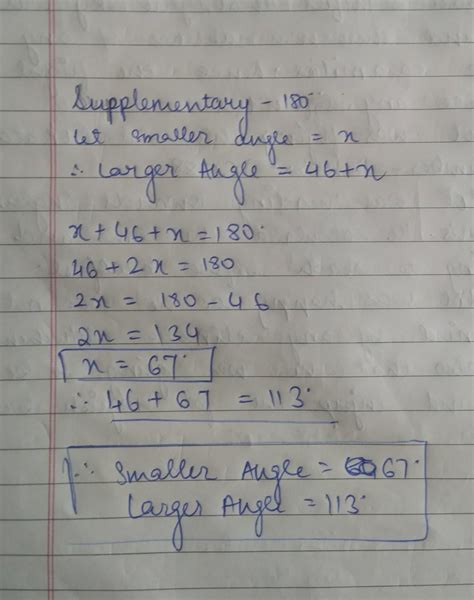 Supplementary - 180°
let smaller angle = x
∴ Larger Angle = 46+x
x + 46 + x = 180°
46 + 2x = 180
2x = 180 - 46
2x = 134
x = 67°
∴ 46 + 67 = 113°
∴ Smaller Angle = 67°
Larger Angle = 113°